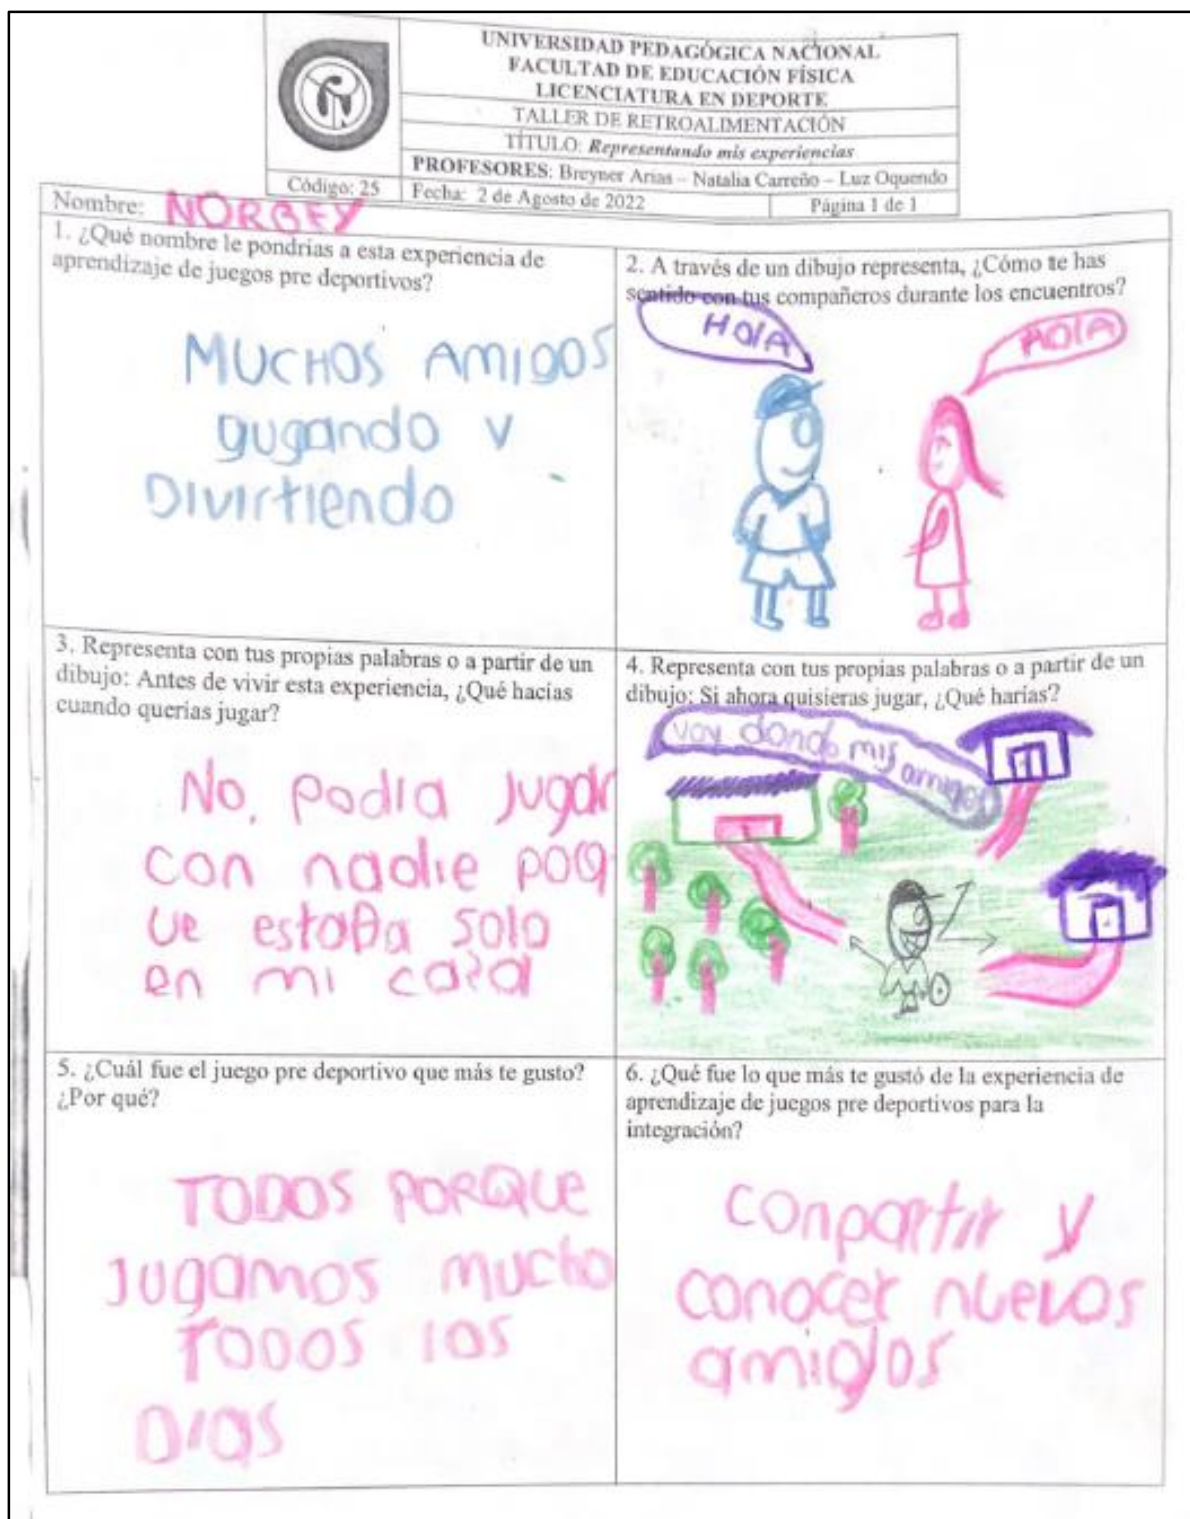 UNIVERSIDAD PEDAGÓGICA NACIONAL
FACULTAD DE EDUCACIÓN FÍSICA
LICENCIATURA EN DEPORTE
TALLER DE RETROALIMENTACIÓN
TÍTULO: Representando mis experiencias
PROFESORES: Breyner Arias – Natalia Carreño – Luz Oquendo
Código: 25
Fecha: 2 de Agosto de 2022
Página 1 de 1
Nombre: NORBEY
1. ¿Qué nombre le pondrías a esta experiencia de
aprendizaje de juegos pre deportivos?
MUCHOS AMIGOS
gugando y
Divirtiendo
2. A través de un dibujo representa, ¿Cómo te has
sentido con tus compañeros durante los encuentros?
HOLA
HOLA
3. Representa con tus propias palabras o a partir de un
dibujo: Antes de vivir esta experiencia, ¿Qué hacías
cuando querías jugar?
No, podia jugar
con nadie porq
ue estaba solo
en mi casa
4. Representa con tus propias palabras o a partir de un
dibujo: Si ahora quisieras jugar, ¿Qué harías?
voy donde mis amigos
5. ¿Cuál fue el juego pre deportivo que más te gusto?
¿Por qué?
TODOS PORQUE
JUGAMOS mucho
TODOS los
DIAS
6. ¿Qué fue lo que más te gustó de la experiencia de
aprendizaje de juegos pre deportivos para la
integración?
conpartir y
conocer nuevos
amigos